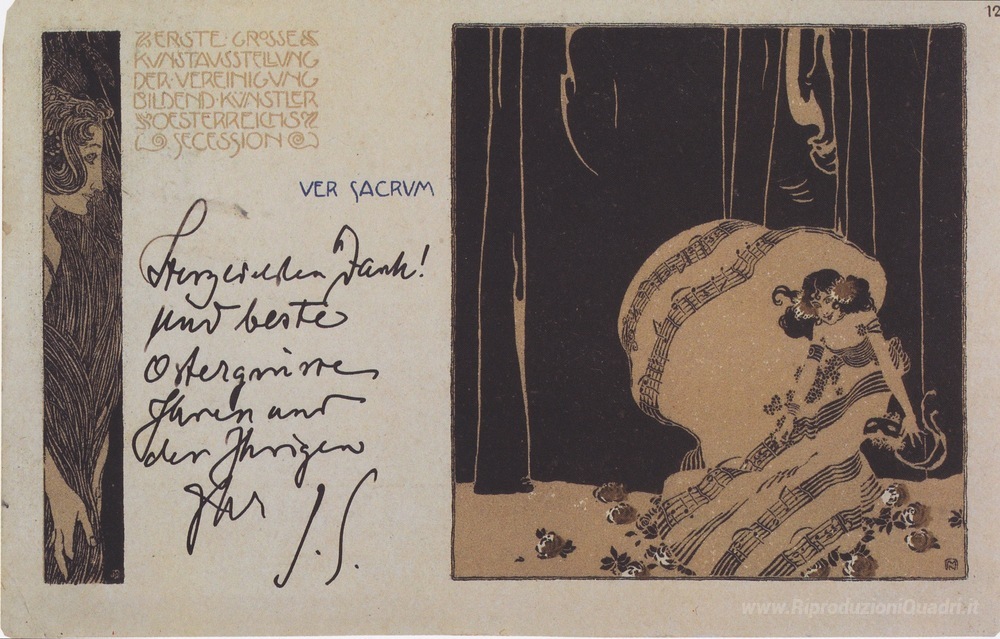 12
ERSTE · GROSSE
KUNSTAUSSTELLUNG
DER · VEREINIGUNG
BILDEND · KÜNSTLER
OESTERREICHS
SECESSION
VER SACRVM
Herzlichsten Dank!
und beste
Ostergrüsse
Ihnen und
den Ihrigen
Ihr J. S.
www.RiproduzioniQuadri.it